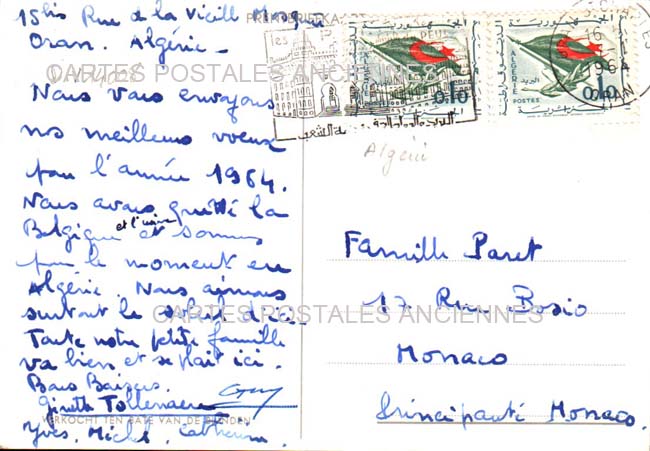 15bis Rue de la Vieille Mosquée
Oran. Algérie.
CARTES POSTALES ANCIENNES
Nous vous envoyons
nos meilleurs voeux
pour l'année 1964.
Nous avons quitté la
Belgique et l'usine et sommes
pour le moment en
Algérie. Nous aimons
surtout le soleil d'ici.
CARTES POSTALES ANCIENNES
Toute notre petite famille
va bien et se plait ici.
Bons Baisers.
Tollenaere
VERKOCHT TEN BATE VAN DE BLINDEN
Yves. Michel. Catherine.
ALGERIE
POSTES
0,10
0,40
16
1964
ORAN
Algérie
Famille Paret
17 Rue Bosio
Monaco
Principauté Monaco.